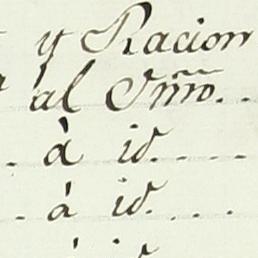 y Racion
al Ynño...
à id....
à id....